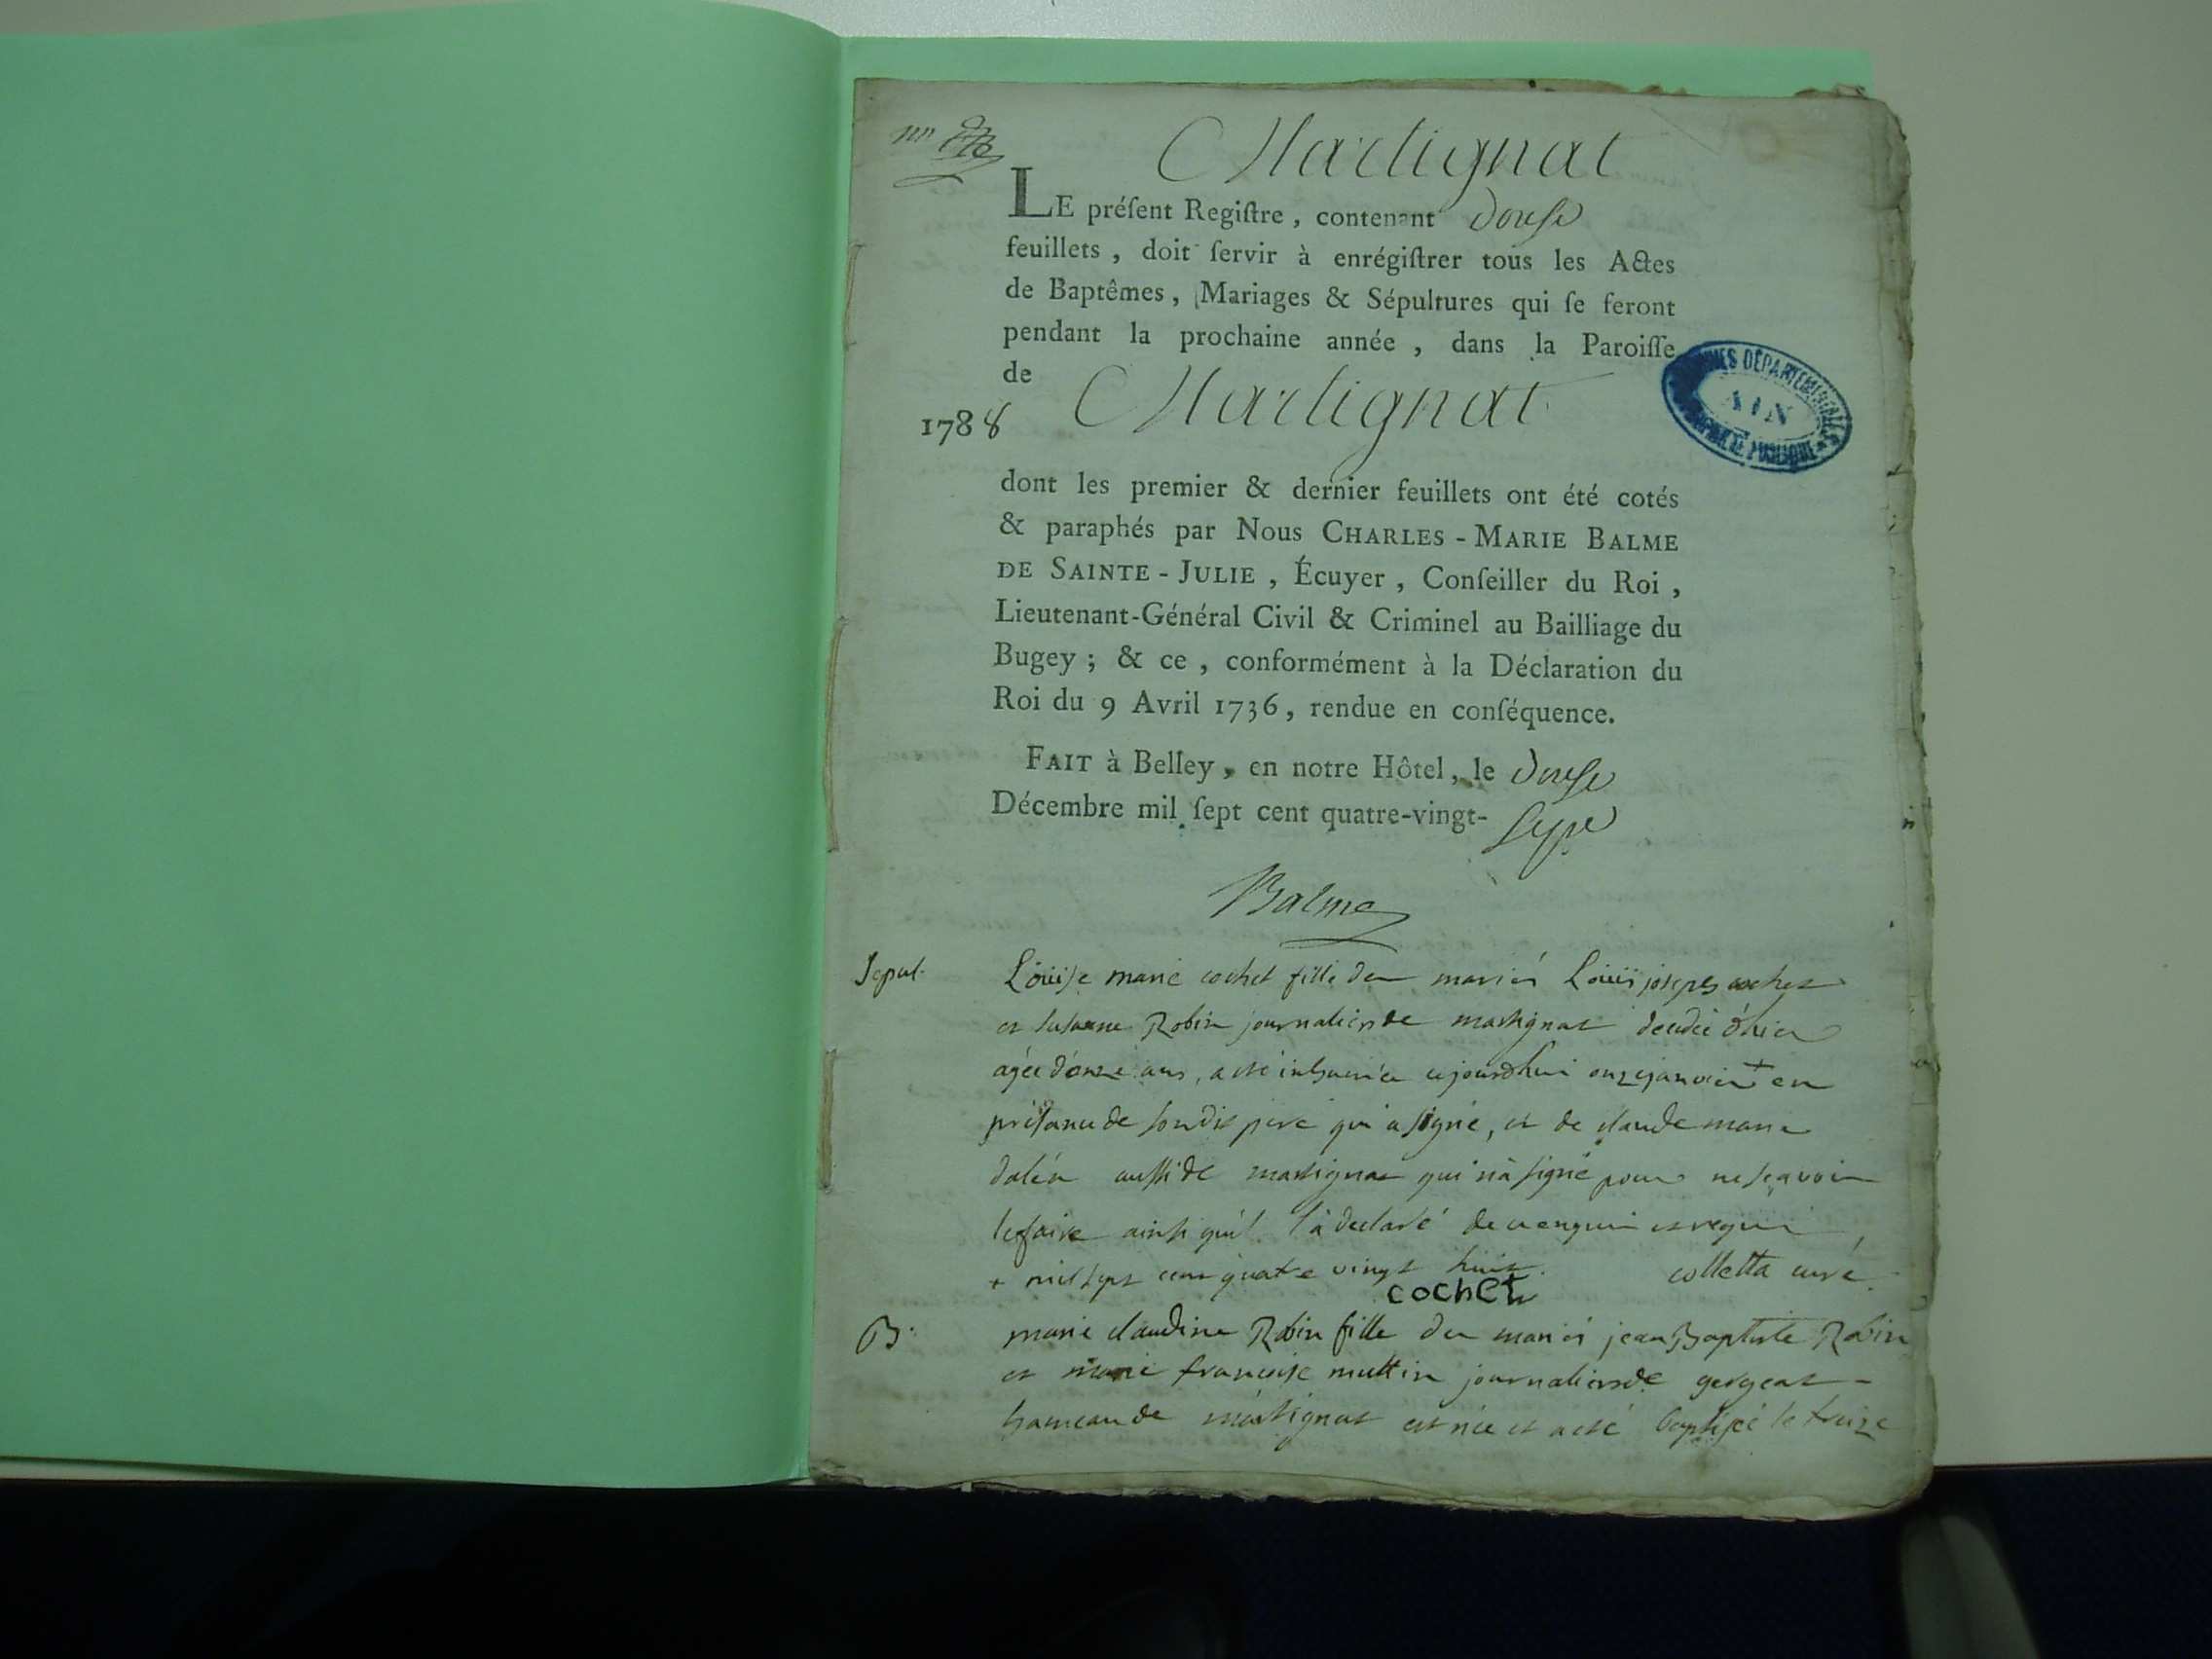 Martignat
LE préſent Regiſtre, contenant douſe
feuillets, doit ſervir à enrégiſtrer tous les Actes
de Baptêmes, Mariages & Sépultures qui ſe feront
pendant la prochaine année, dans la Paroiſſe
de Martignat
1788
ARCHIVES DÉPARTEMENTALES
AIN
PROPRIÉTÉ PUBLIQUE
dont les premier & dernier feuillets ont été cotés
& paraphés par Nous CHARLES-MARIE BALME
DE SAINTE-JULIE, Écuyer, Conſeiller du Roi,
Lieutenant-Général Civil & Criminel au Bailliage du
Bugey; & ce, conformément à la Déclaration du
Roi du 9 Avril 1736, rendue en conſéquence.
FAIT à Belley, en notre Hôtel, le douſe
Décembre mil ſept cent quatre-vingt-ſept
Balme
Sepul. Loüise marie cochet fille des mariés Loüis joseph cochet
et susanne Robin journaliers de martignat decedée d'hier
agée d'onze ans, a eté inhumée cejourdhui onze janvier + en
présence de son dit père qui a signé, et de claude marie
aussi de martignat qui n'a signé pour ne sçavoir
le faire ainsi qu'il l'a declaré de ce enquis et requis,
+ mil sept cent quatre vingt huit. colletta curé
cochet
B. marie claudine Robin fille des mariés jean Baptiste Robin
et marie francoise muttin journaliers de gergeat
hameau de martignat est née et a eté baptisée le treize